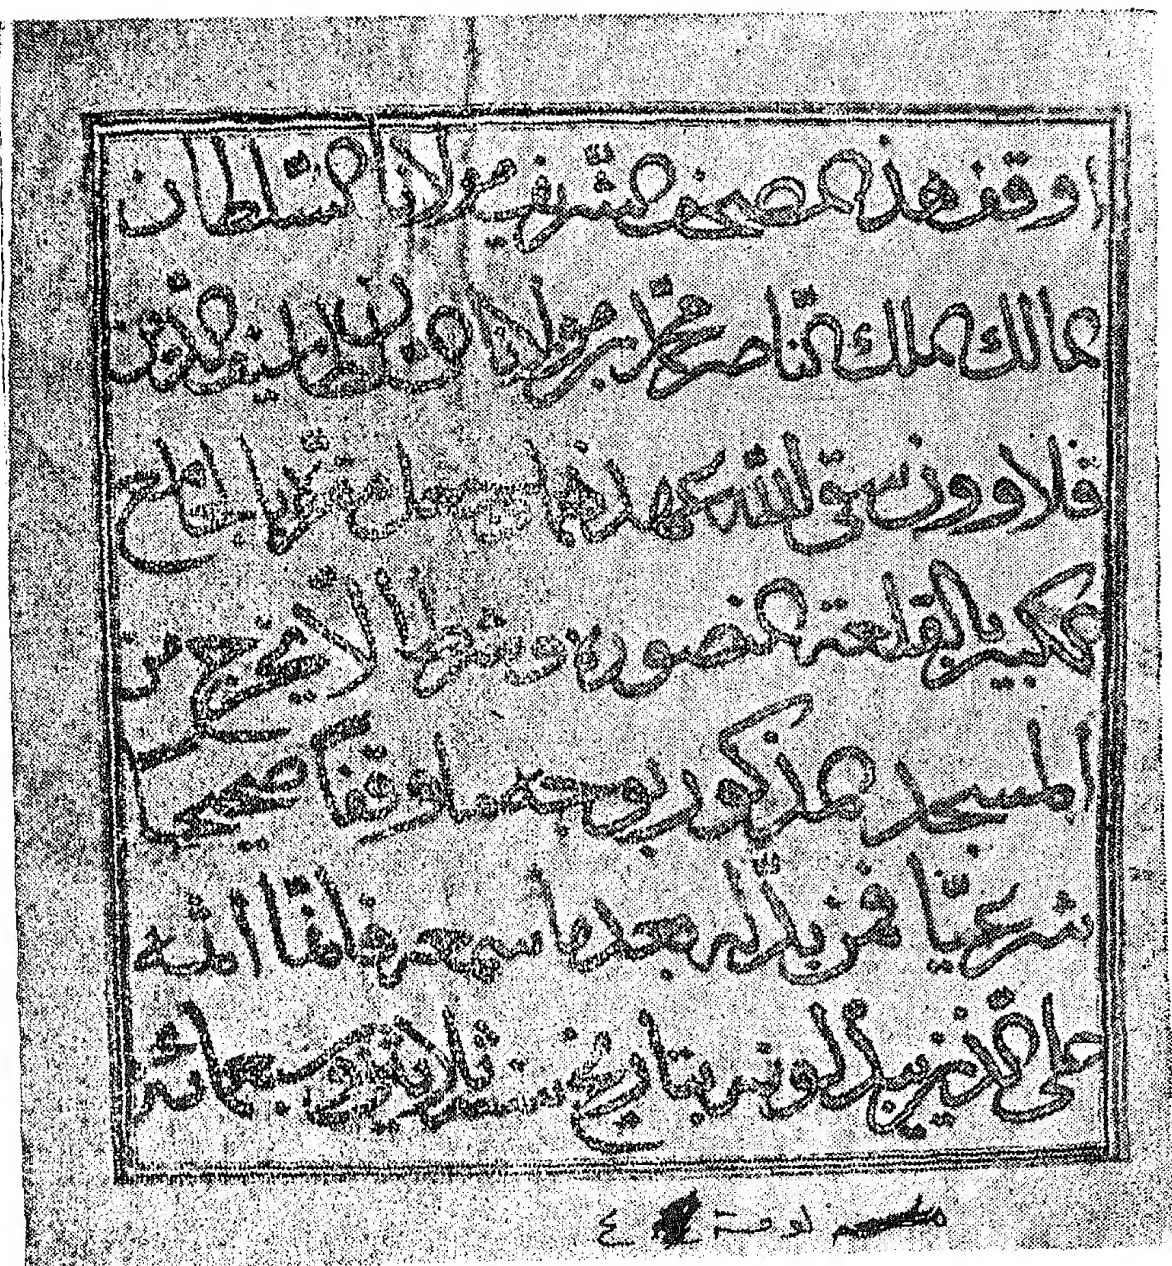 اوقف هذه المصحف الشريف مولانا السلطان
المالك الملك الناصر محمد بن مولانا السلطان
قلاوون سقى الله عهده الجامع
الكبير بالقلعة المنصورة وشرط ان لا يخرج من
المسجد المذكور بوجه ما وقفا صحيحا
شرعيّا فمن بدّله بعد ما سمعه فانما اثمه
على الذين يبدلونه بتاريخ سنة ثلاثين وسبعمائة
لوحة ٤